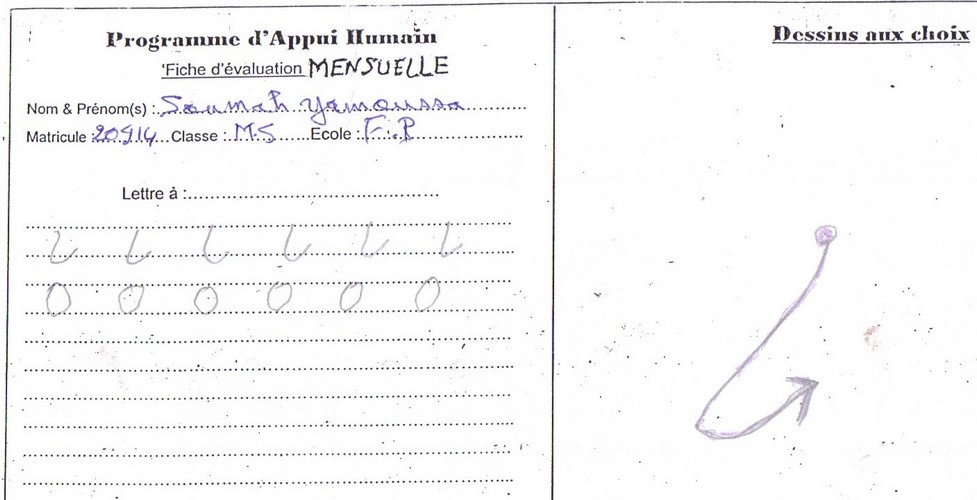 Programme d'Appui Humain
'Fiche d'évaluation MENSUELLE
Nom & Prénom(s) : Soumah Yamoussa
Matricule 20914 Classe : M.S Ecole : F.P
Lettre à :
ι ι ι ι ι ι
0 0 0 0 0 0
Dessins aux choix